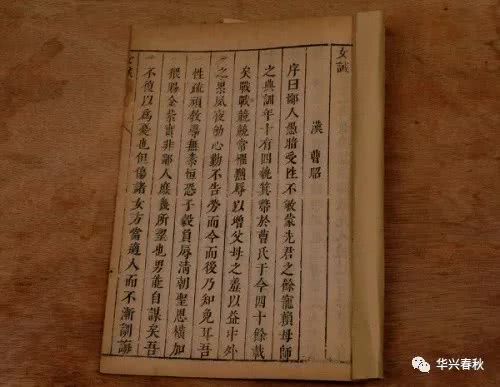 女誡
漢 曹昭
序曰鄙人愚暗受性不敏蒙先君之餘寵賴母師
之典訓年十有四執箕帚於曹氏于今四十餘載
矣戰戰兢兢常懼黜辱以增父母之羞以益中外
之累夙夜劬心勤不告勞而今而後乃知免耳吾
性疏頑教導無素恒恐子穀負辱清朝聖恩橫加
猥賜金紫實非鄙人庶幾所望也男能自謀矣吾
不復以爲憂也但傷諸女方當適人而不漸訓誨
女誡
华兴春秋